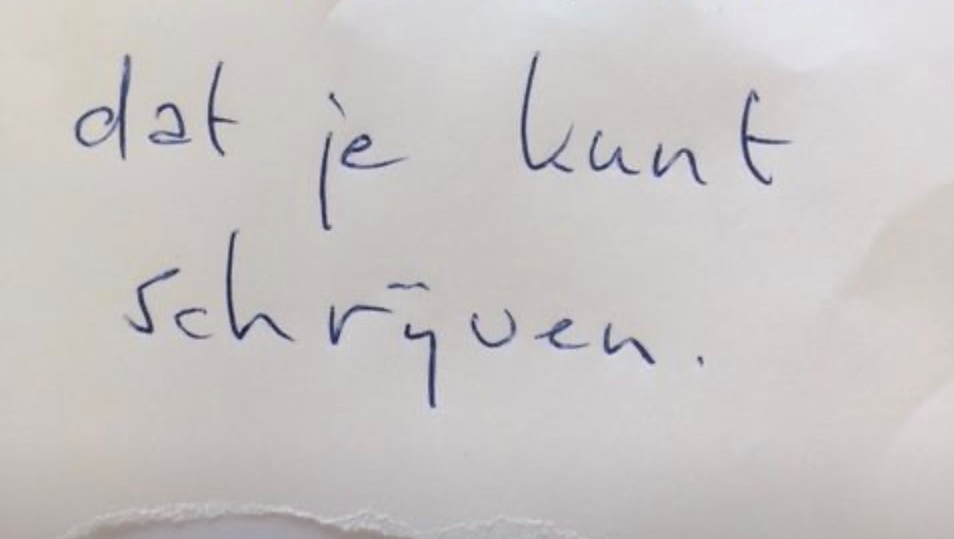 dat je kunt
schrijven.